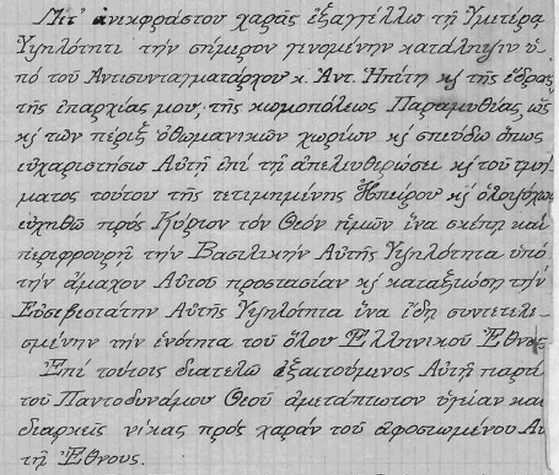 Μετ' ἀνεκφράστου χαρᾶς ἐξαγγέλλω τῇ Ὑμετέρᾳ
Ὑψηλότητι τὴν σήμερον γενομένην κατάληψιν ὑ-
πό τοῦ Ἀντισυνταγματάρχου κ. Ἀντ. Ἠπίτη κỳ τῆς ἕδρας
τῆς ἐπαρχίας μου, τῆς κωμοπόλεως Παραμυθίας, ὡς
κỳ τῶν πέριξ ὀθωμανικῶν χωρίων κỳ σπεύδω ὅπως
εὐχαριστήσω Αὐτῇ ἐπί τῇ ἀπελευθερώσει κỳ τοῦ τμή-
ματος τούτου τῆς τετιμημένης Ἠπείρου κỳ ὁλοψύχως
εὐχηθῶ πρός Κύριον τόν Θεόν ἡμῶν ἵνα σκέπῃ καί
περιφρουρῇ τήν Βασιλικήν Αὐτῆς Ὑψηλότητα ὑπό
τήν ἄμαχον Αὐτοῦ προστασίαν κỳ καταξιώσῃ τήν
Εὐσεβεστάτην Αὐτῆς Ὑψηλότητα ἵνα ἴδῃ συντετελε-
σμένην τήν ἑνότητα τοῦ ὅλου Ἑλληνικοῦ Ἔθνους
Ἐπί τούτοις διατελῶ ἐξαιτούμενος Αὐτῇ παρά
τοῦ Παντοδυνάμου Θεοῦ ἀμετάπτωτον ὑγείαν καί
διαρκεῖς νίκας πρός χαράν τοῦ ἀφοσιωμένου Αὐ
τῇ Ἔθνους.